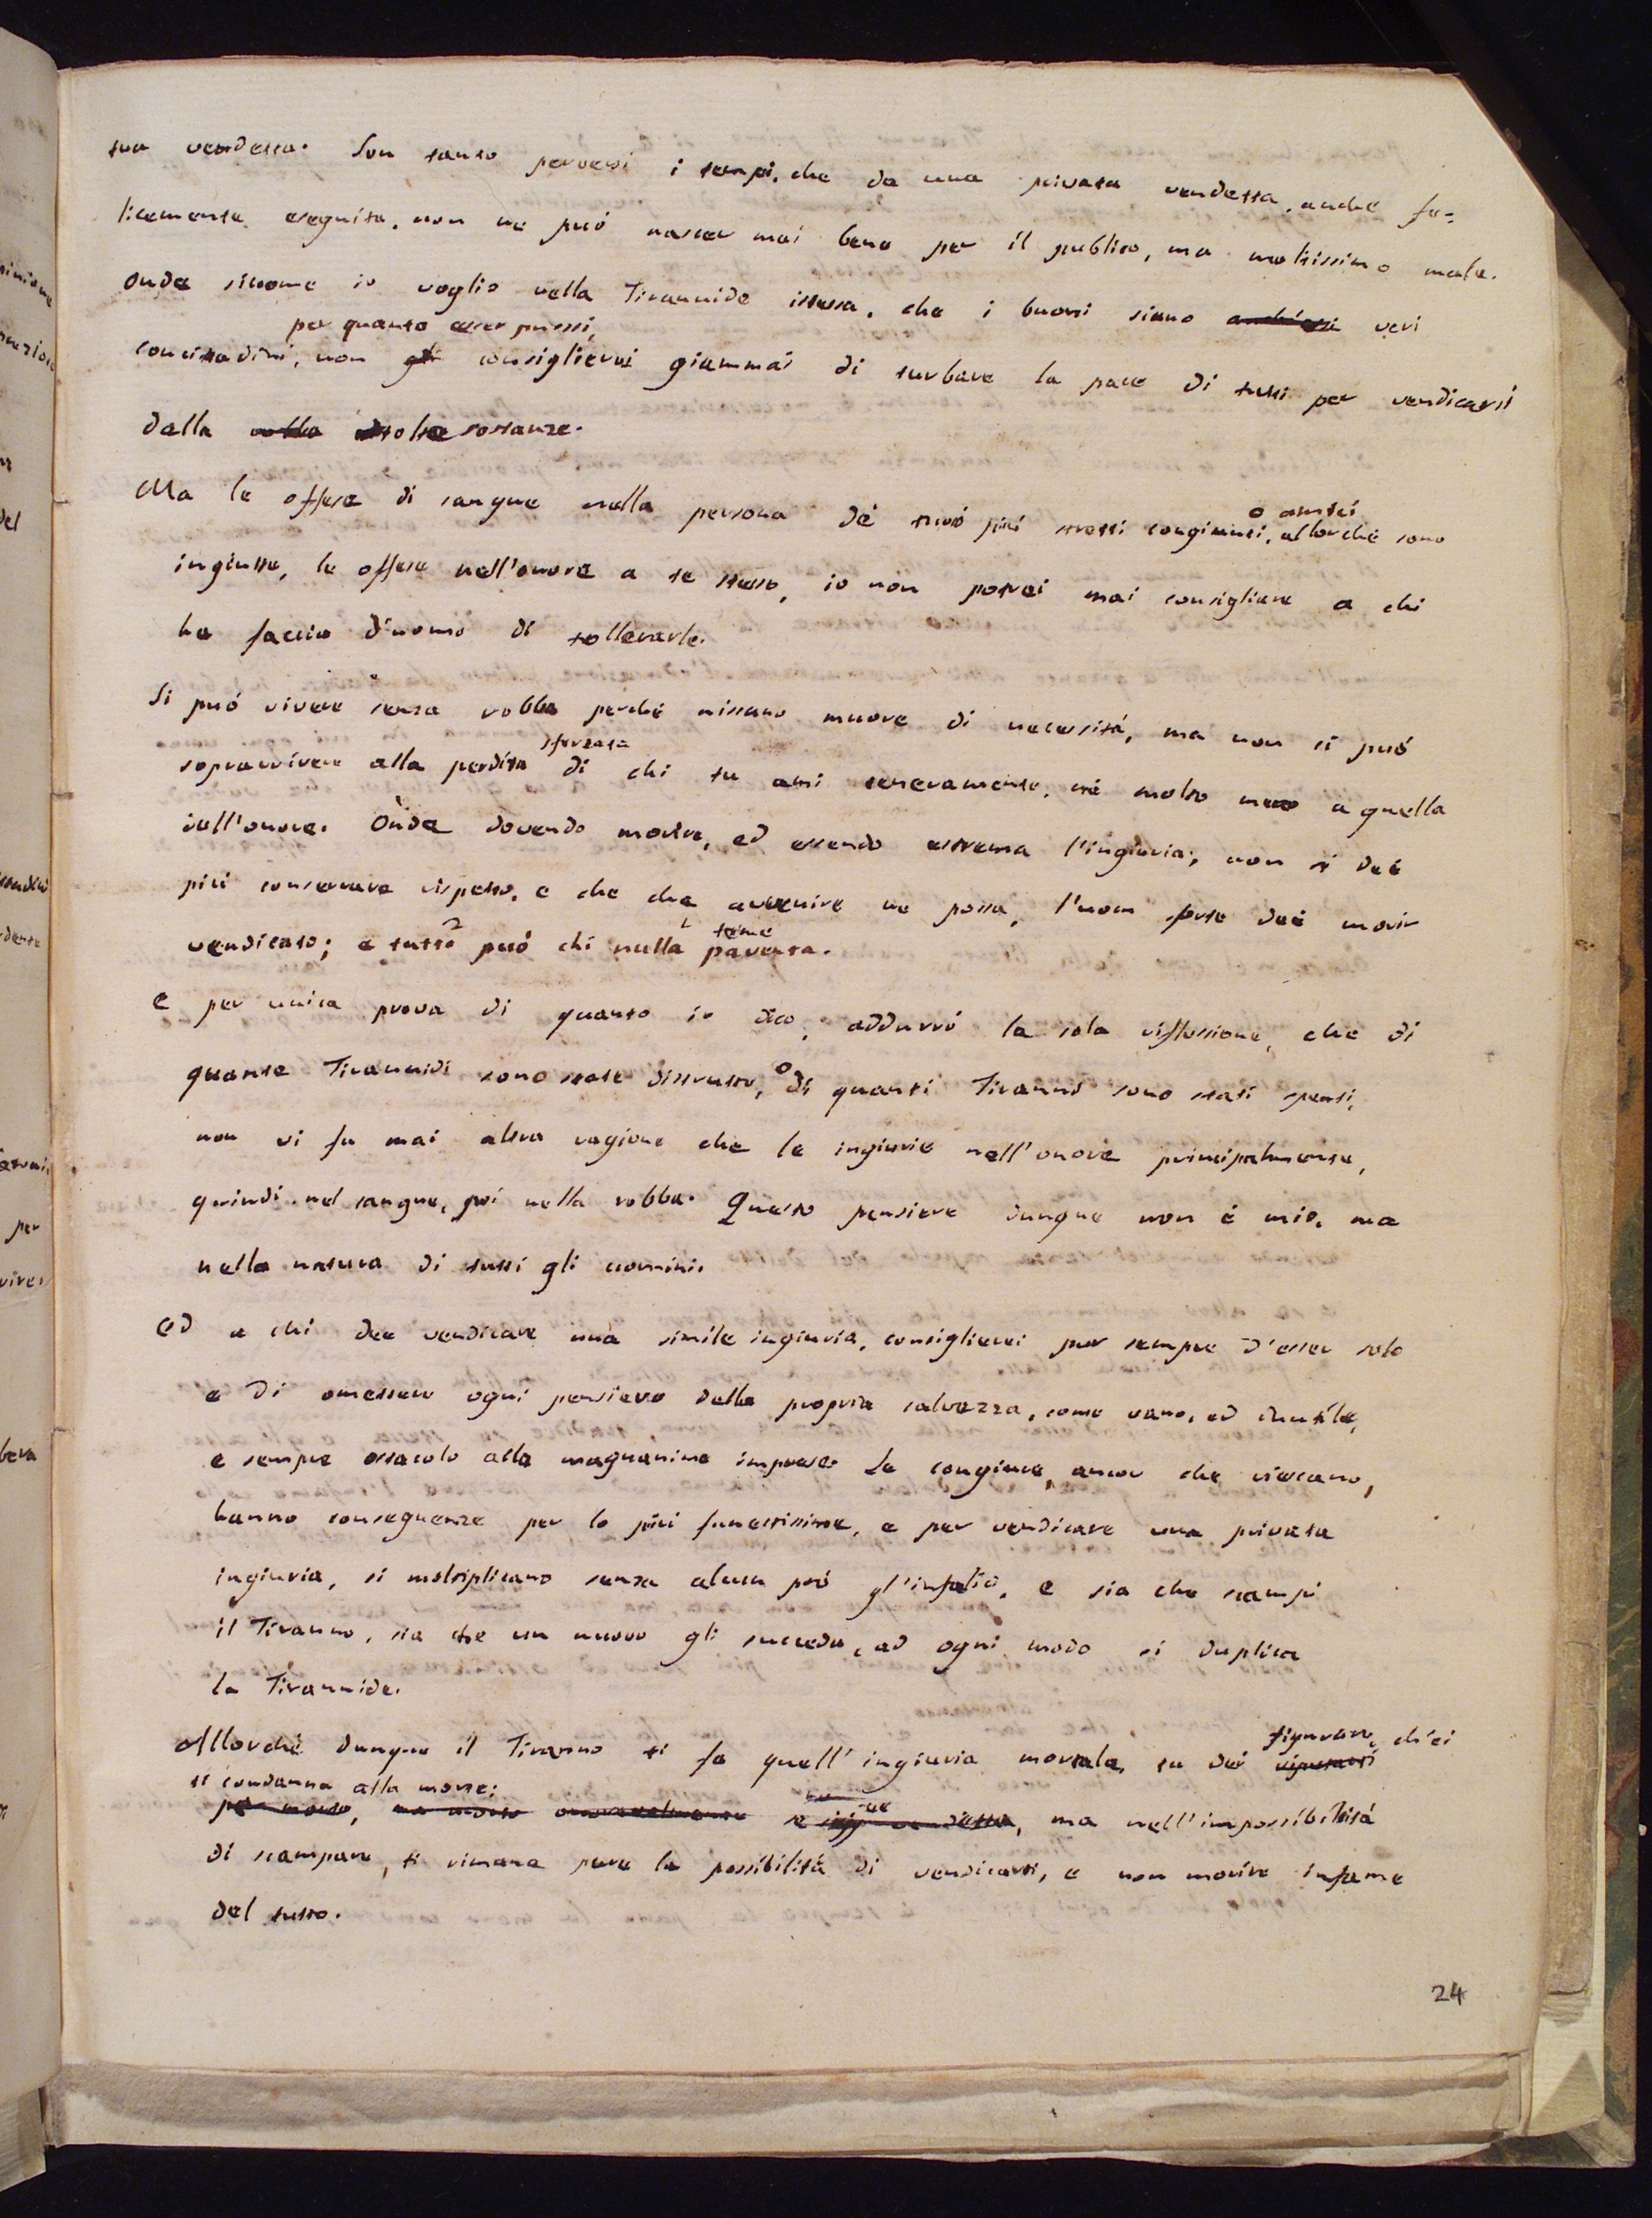 sua vendetta. Son tanto perversi i tempi, che da una privata vendetta, anche fe=
licemente eseguita, non ne può nascer mai bene per il publico, ma moltissimo male.
Onde siccome io voglio nella Tirannide istessa, che i buoni siano anch'essi veri
per quanto esser puossi,
concittadini, non consiglierei giammai di turbare la pace di tutti per vendicarsi
della tolte sostanze.
Ma le offese di sangue nella persona de' tuoi più stretti congiunti, o amici allorchè sono
ingiuste, le offese nell'onore a te stesso, io non potrei mai consigliare a chi
ha faccia d'uomo di tollerarle.
Si può vivere senza robba perchè nissuno muore di necessità, ma non si può
sopravvivere alla perdita sforzata di chi tu ami teneramente, né molto meno a quella
dell'onore. Onde dovendo morire, ed essendo estrema l'ingiuria, non si dee
più conservare rispetto, e che che avvenire ne possa, l'uom forte dee morir
vendicato; e tutto può chi nulla teme paventa.
e per unica prova di quanto io dico, addurrò la sola riflessione, che di
quante Tirannidi sono state distrutte, o di quanti Tiranni sono stati spenti,
non vi fu mai altra ragione che le ingiurie nell'onore principalmente,
quindi nel sangue, poi nella robba. Questo pensiere dunque non è mio, ma
nella natura di tutti gli uomini.
ed a chi dee vendicare una simile ingiuria, consiglierei pur sempre d'esser solo
e di omettere ogni pensiero della propria salvezza, come vano, ed inutile,
e sempre ostacolo alla magnanime imprese. Le congiure, ancor che riescano,
hanno conseguenze per lo più funestissime, e per vendicare una privata
ingiuria, si moltiplicano senza alcun prò gl'infelici, e sia che scampi
il Tiranno, sia che un nuovo gli succeda, ad ogni modo si duplica
la Tirannide.
Allorchè dunque il Tiranno ti fa quell'ingiuria mortale, tu dei figurare, ch'ei riputarti
ti condanna alla morte:
per morto, ma morto onoratamente se, ma nell'impossibiltità
di scampare, ti rimane pure la possibilità di vendicarti, e non morire infame
del tutto.
24